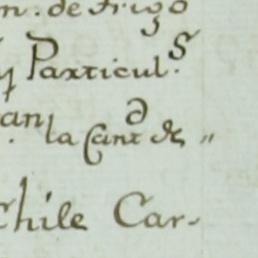 n. de Trigo
y Particul.s
an la Cant.d de "
Chile Car-